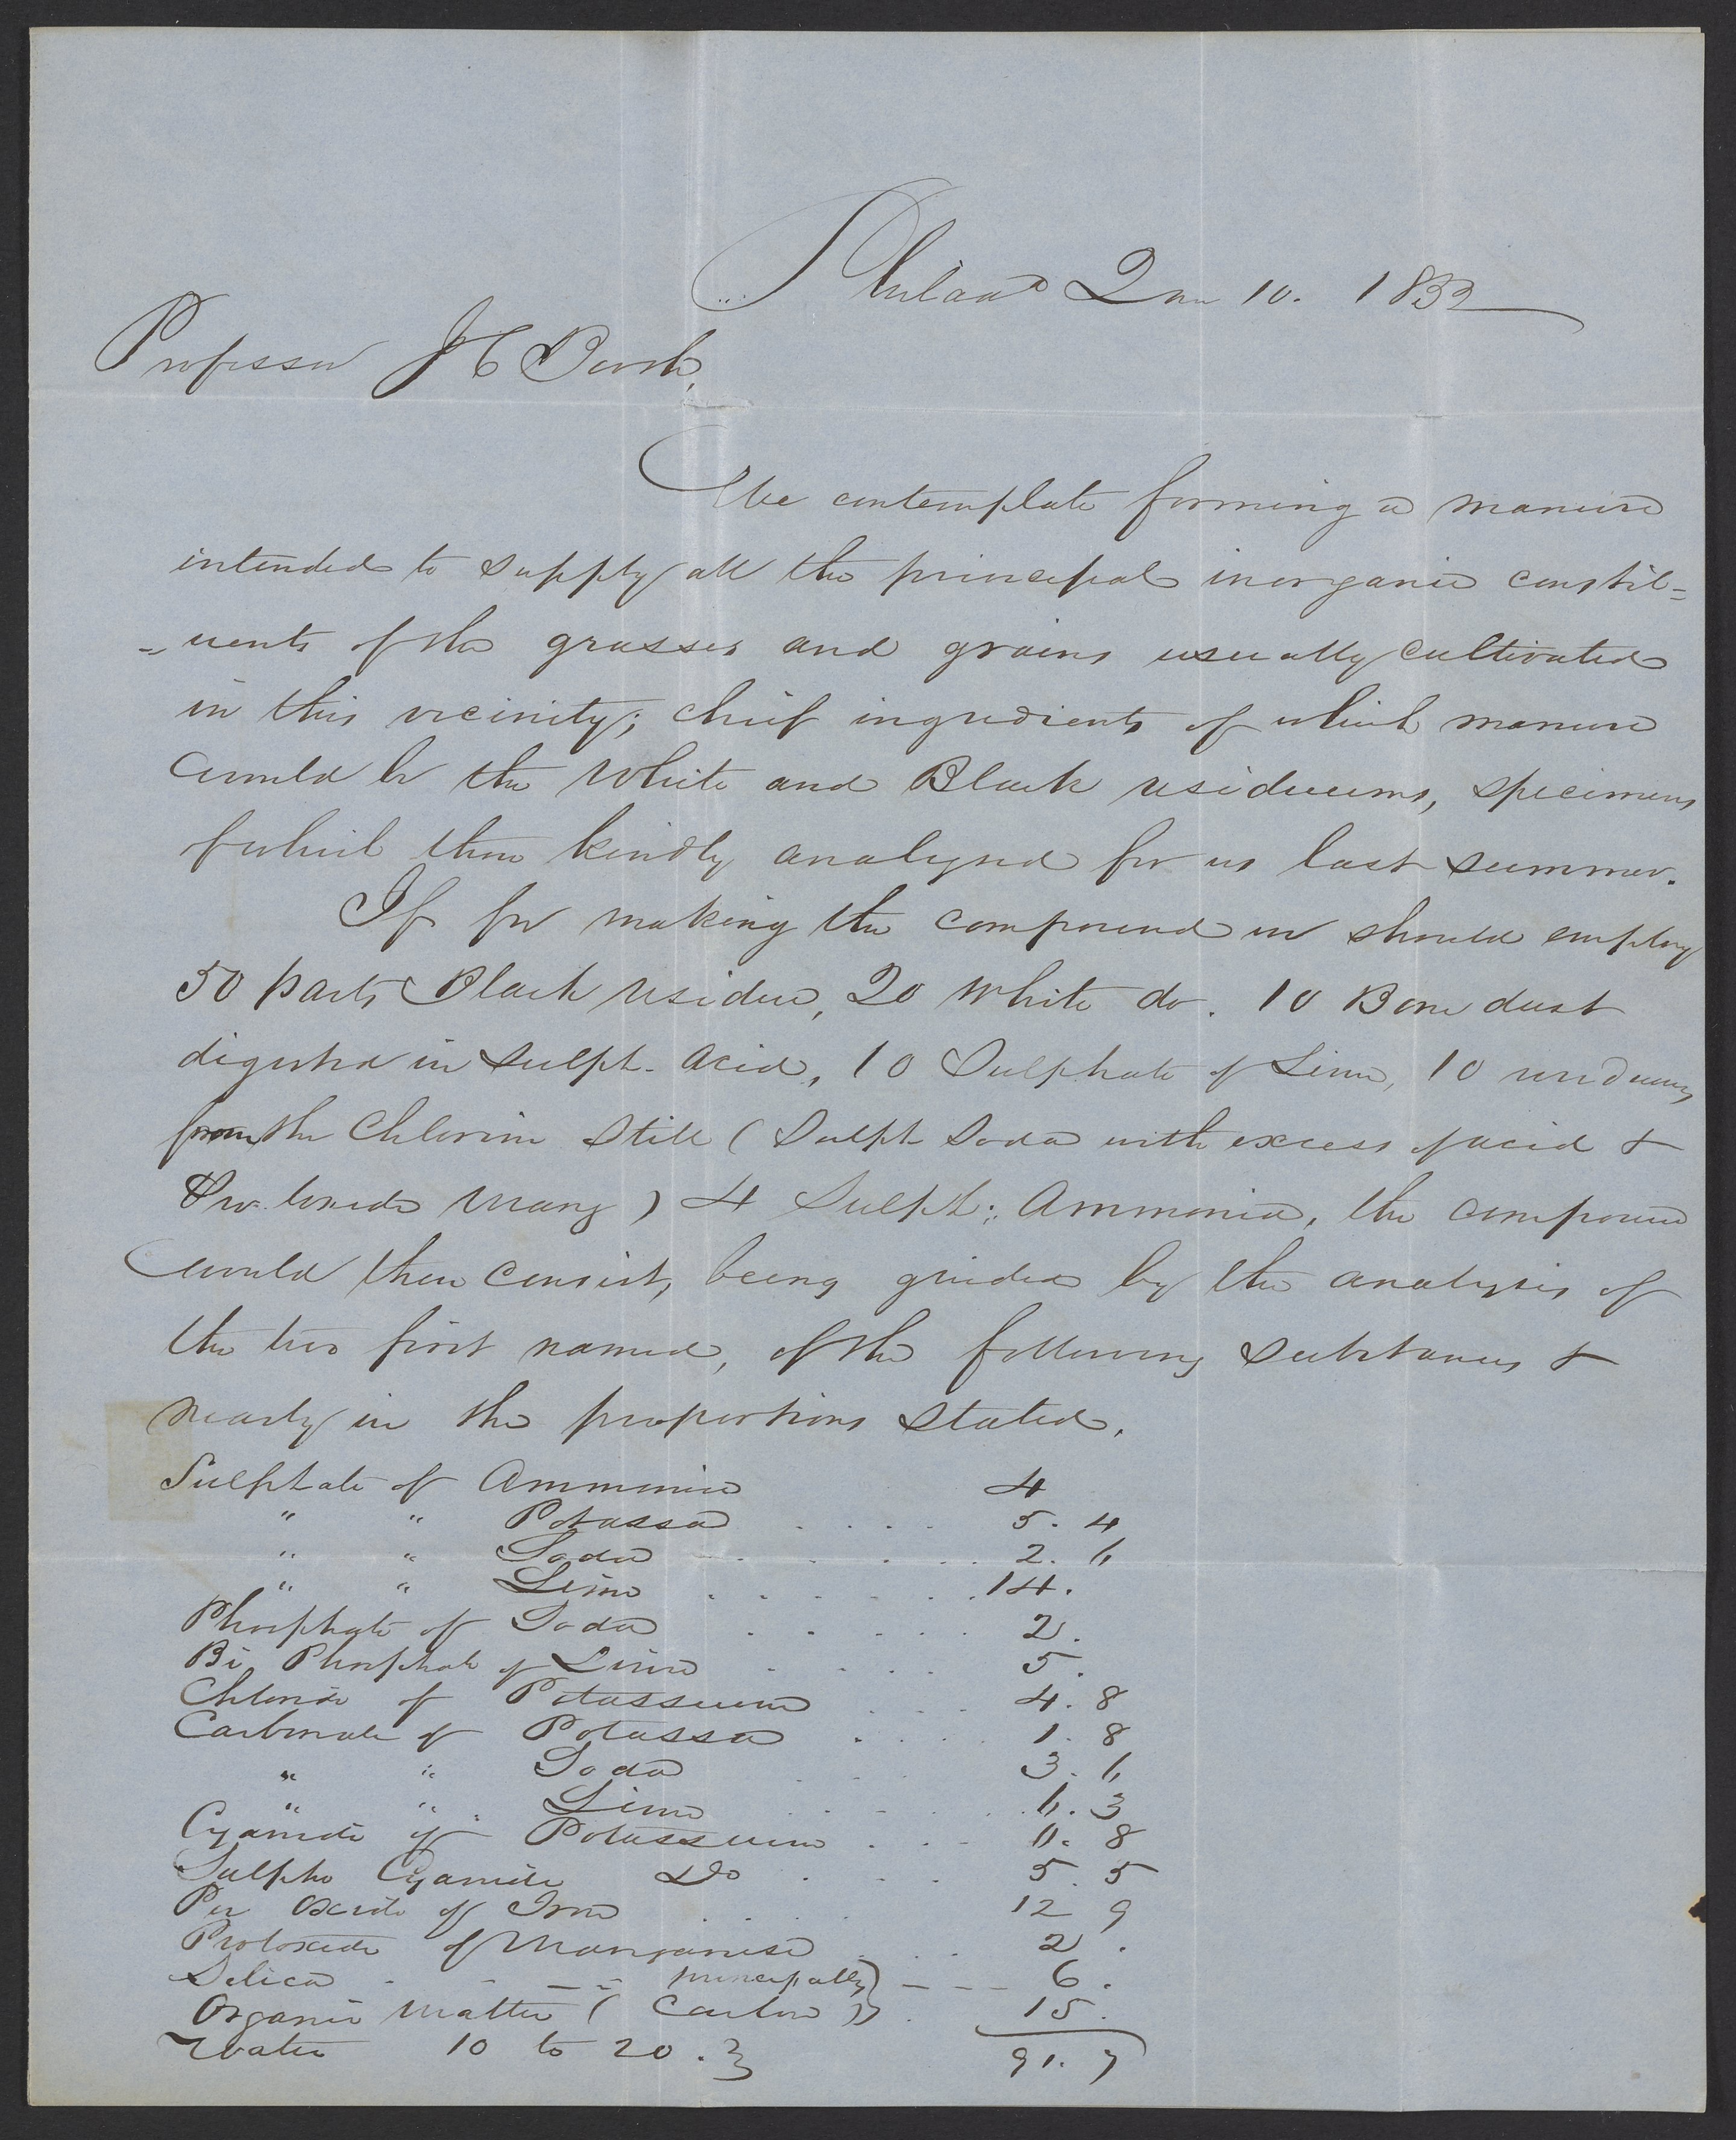 Philada Jan 10. 1852
Professor J C Booth,
We contemplate forming a manure
intended to supply all the principal inorganic constit=
=uents of the grasses and grains usually cultivated
in this vicinity; chief ingredients of which manure
would be the White and Black residuums, specimens
of which thou kindly analysed for us last summer.
If for making the compound we should employ
50 parts Black residue, 20 White do. 10 Bone dust
digested in Sulph. acid, 10 Sulphate of Lime, 10 residuum
from the Chlorine Still (Sulph Soda with excess of acid &
Protoxide Mang) 4 Sulph: Ammonia, the compound
would then consist, being guided by the analysis of
the two first named, of the following substances &
nearly in the proportions stated.
Sulphate of Ammonia 4
" " Potassa . . . . 5.4
" " Soda . . . . . 2.6
" " Lime . . . . . 14.
Phosphate of Soda . . . . . 2.
Bi Phosphate of Lime . . . . 5.
Chloride of Potassium . . . 4.8
Carbonate of Potassa . . . . 1.8
" " Soda . . . 3.6
" " Lime . . . . .3
Cyanide of Potassium . . . .8
Sulpho Cyanide Do . . . . 5.5
Per Oxide of Iron . . . . 12 9
Protoxide of Manganese . . . 2.
Silica - - - - principally) - - - 6.
Organic Matter ( Carbon )) . 15.
Water 10 to 20. 91.7